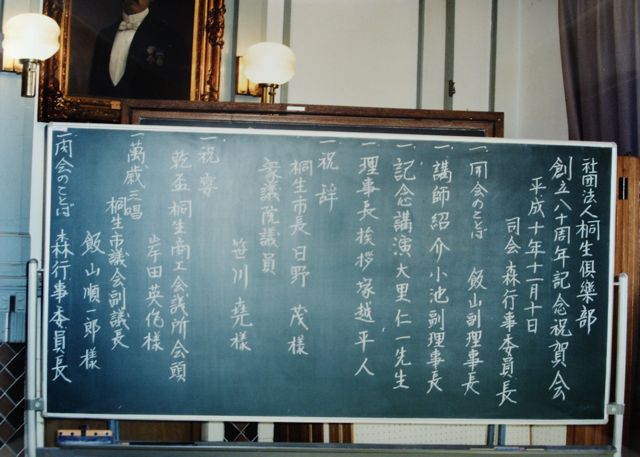 社団法人桐生倶楽部
創立八十周年記念祝賀会
平成十年十二月十日
司会 森行事委員長
一、開会のことば 飯山副理事長
一、講師紹介 小池副理事長
一、記念講演 大里仁一先生
一、理事長挨拶 塚越平人
一、祝辞
桐生市長 日野 茂様
衆議院議員
笹川 堯様
一、祝宴
乾盃 桐生商工会議所会頭
岸田英作様
一、萬歳三唱
桐生市議会副議長
飯山順一郎様
一、閉会のことば 森行事委員長